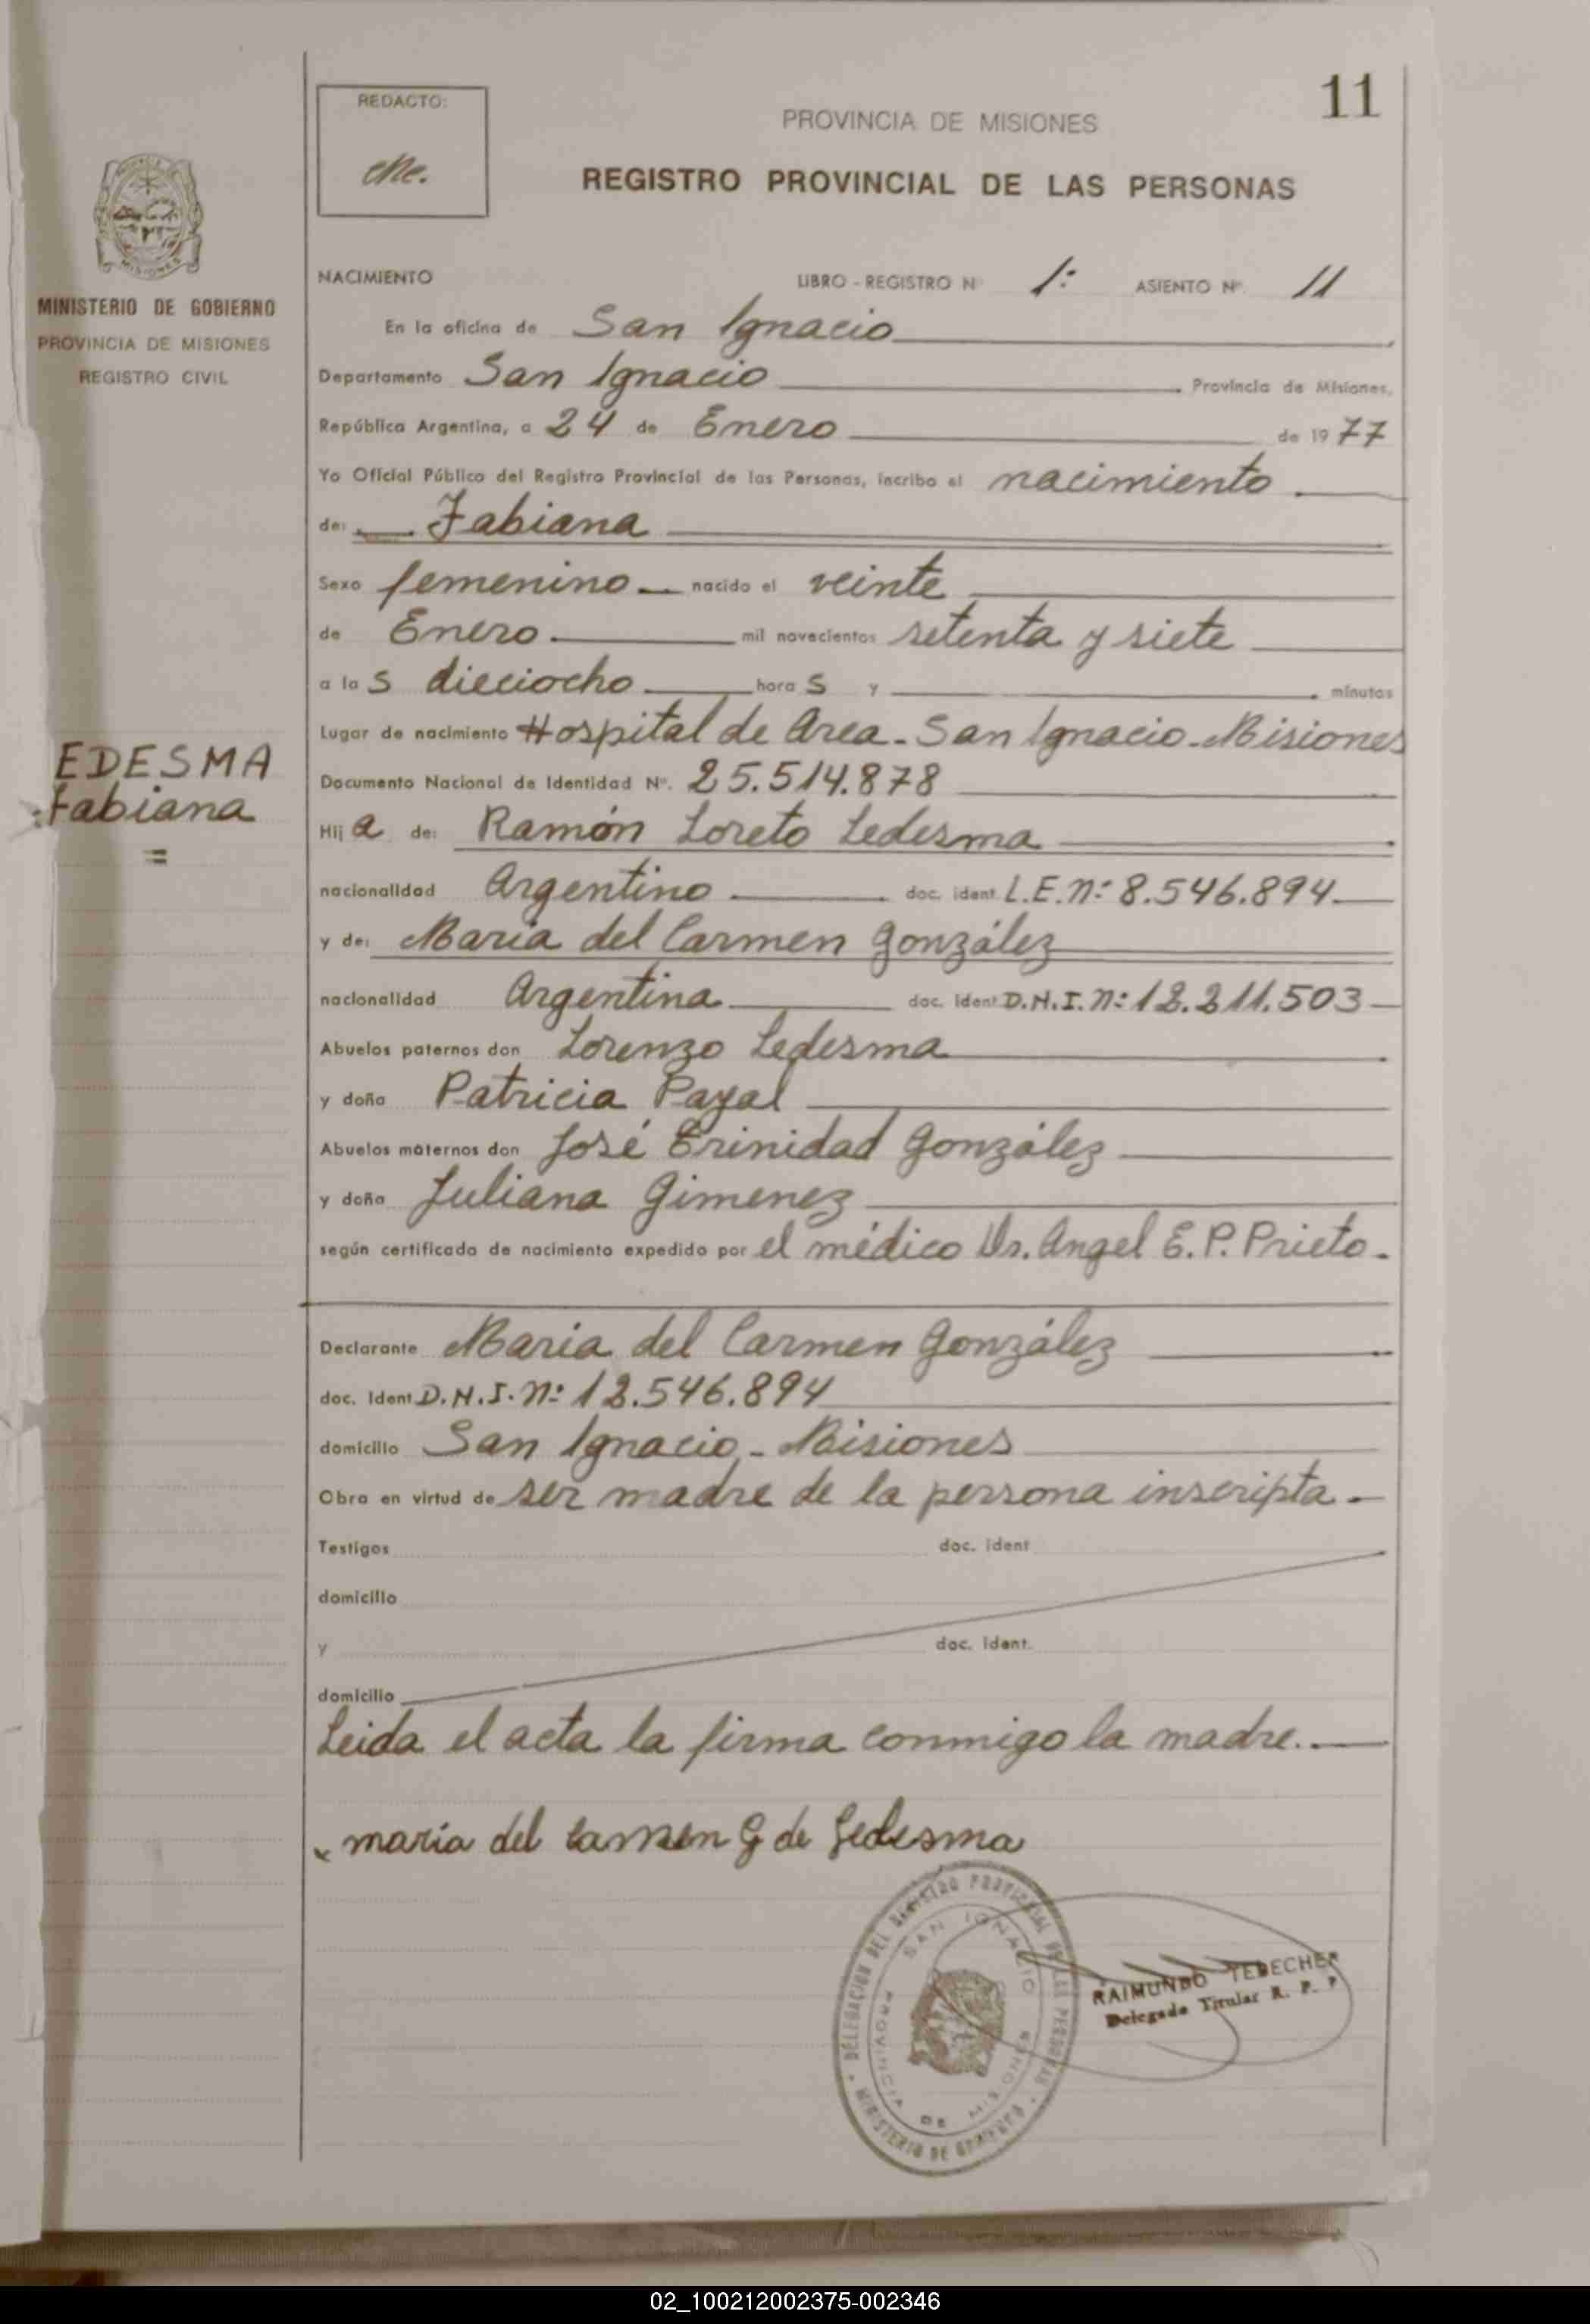 11
REDACTO:
Me.
PROVINCIA DE MISIONES
REGISTRO PROVINCIAL DE LAS PERSONAS
MISIONES
MINISTERIO DE GOBIERNO
PROVINCIA DE MISIONES
REGISTRO CIVIL
NACIMIENTO LIBRO - REGISTRO Nº 1: ASIENTO Nº. 11
En la oficina de San Ignacio
Departamento San Ignacio Provincia de Misiones,
República Argentina, a 24 de Enero de 1977
Yo Oficial Público del Registro Provincial de las Personas, incribo el nacimiento
de: Fabiana
Sexo femenino nacido el veinte
de Enero mil novecientos setenta y siete
a las dieciocho horas y minutos
Lugar de nacimiento Hospital de Area - San Ignacio - Misiones
EDESMA
Fabiana
=
Documento Nacional de Identidad Nº. 25.514.878
Hija de: Ramón Loreto Ledesma
nacionalidad Argentino doc. ident. L.E. nº 8.546.894
y de: Maria del Carmen González
nacionalidad Argentina doc. ident. D.N.I. nº 12.211.503
Abuelos paternos don Lorenzo Ledesma
y doña Patricia Payal
Abuelos maternos don José Trinidad González
y doña Juliana Gimenez
según certificado de nacimiento expedido por el médico Dr. Angel E. P. Prieto.
Declarante Maria del Carmen González
doc. Ident. D.N.I. nº 12.546.894
domicilio San Ignacio - Misiones
Obra en virtud de ser madre de la persona inscripta.
Testigos doc. ident
domicilio
y doc. ident.
domicilio
Leida el acta la firma conmigo la madre.
x maria del carmen G de Ledesma
DELEGACION DEL REGISTRO PROVINCIAL DE LAS PERSONAS
SAN IGNACIO
PROVINCIA DE MISIONES
MINISTERIO DE GOBIERNO
RAIMUNDO TEDECHER
Delegado Titular R. P. P
02_100212002375-002346